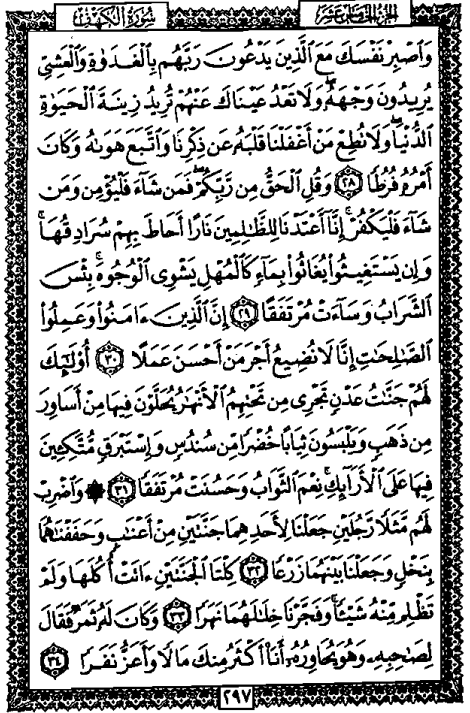 سُورَةُ الكَهْفِ
الجُزْءُ الخَامِسَ عَشَرَ
وَٱصْبِرْ نَفْسَكَ مَعَ ٱلَّذِينَ يَدْعُونَ رَبَّهُم بِٱلْغَدَوٰةِ وَٱلْعَشِىِّ
يُرِيدُونَ وَجْهَهُۥ ۖ وَلَا تَعْدُ عَيْنَاكَ عَنْهُمْ تُرِيدُ زِينَةَ ٱلْحَيَوٰةِ
ٱلدُّنْيَا ۖ وَلَا تُطِعْ مَنْ أَغْفَلْنَا قَلْبَهُۥ عَن ذِكْرِنَا وَٱتَّبَعَ هَوَىٰهُ وَكَانَ
أَمْرُهُۥ فُرُطًا ٢٨ وَقُلِ ٱلْحَقُّ مِن رَّبِّكُمْ ۖ فَمَن شَآءَ فَلْيُؤْمِن وَمَن
شَآءَ فَلْيَكْفُرْ ۚ إِنَّآ أَعْتَدْنَا لِلظَّـٰلِمِينَ نَارًا أَحَاطَ بِهِمْ سُرَادِقُهَا ۚ
وَإِن يَسْتَغِيثُوا۟ يُغَاثُوا۟ بِمَآءٍ كَٱلْمُهْلِ يَشْوِى ٱلْوُجُوهَ ۚ بِئْسَ
ٱلشَّرَابُ وَسَآءَتْ مُرْتَفَقًا ٢٩ إِنَّ ٱلَّذِينَ ءَامَنُوا۟ وَعَمِلُوا۟
ٱلصَّـٰلِحَـٰتِ إِنَّا لَا نُضِيعُ أَجْرَ مَنْ أَحْسَنَ عَمَلًا ٣٠ أُو۟لَـٰٓئِكَ
لَهُمْ جَنَّـٰتُ عَدْنٍ تَجْرِى مِن تَحْتِهِمُ ٱلْأَنْهَـٰرُ يُحَلَّوْنَ فِيهَا مِنْ أَسَاوِرَ
مِن ذَهَبٍ وَيَلْبَسُونَ ثِيَابًا خُضْرًا مِّن سُندُسٍ وَإِسْتَبْرَقٍ مُّتَّكِـِٔينَ
فِيهَا عَلَى ٱلْأَرَآئِكِ ۚ نِعْمَ ٱلثَّوَابُ وَحَسُنَتْ مُرْتَفَقًا ٣١ ۞ وَٱضْرِبْ
لَهُم مَّثَلًا رَّجُلَيْنِ جَعَلْنَا لِأَحَدِهِمَا جَنَّتَيْنِ مِنْ أَعْنَـٰبٍ وَحَفَفْنَـٰهُمَا
بِنَخْلٍ وَجَعَلْنَا بَيْنَهُمَا زَرْعًا ٣٢ كِلْتَا ٱلْجَنَّتَيْنِ ءَاتَتْ أُكُلَهَا وَلَمْ
تَظْلِم مِّنْهُ شَيْـًٔا ۚ وَفَجَّرْنَا خِلَـٰلَهُمَا نَهَرًا ٣٣ وَكَانَ لَهُۥ ثَمَرٌ فَقَالَ
لِصَـٰحِبِهِۦ وَهُوَ يُحَاوِرُهُۥٓ أَنَا۠ أَكْثَرُ مِنكَ مَالًا وَأَعَزُّ نَفَرًا ٣٤
٢٩٧